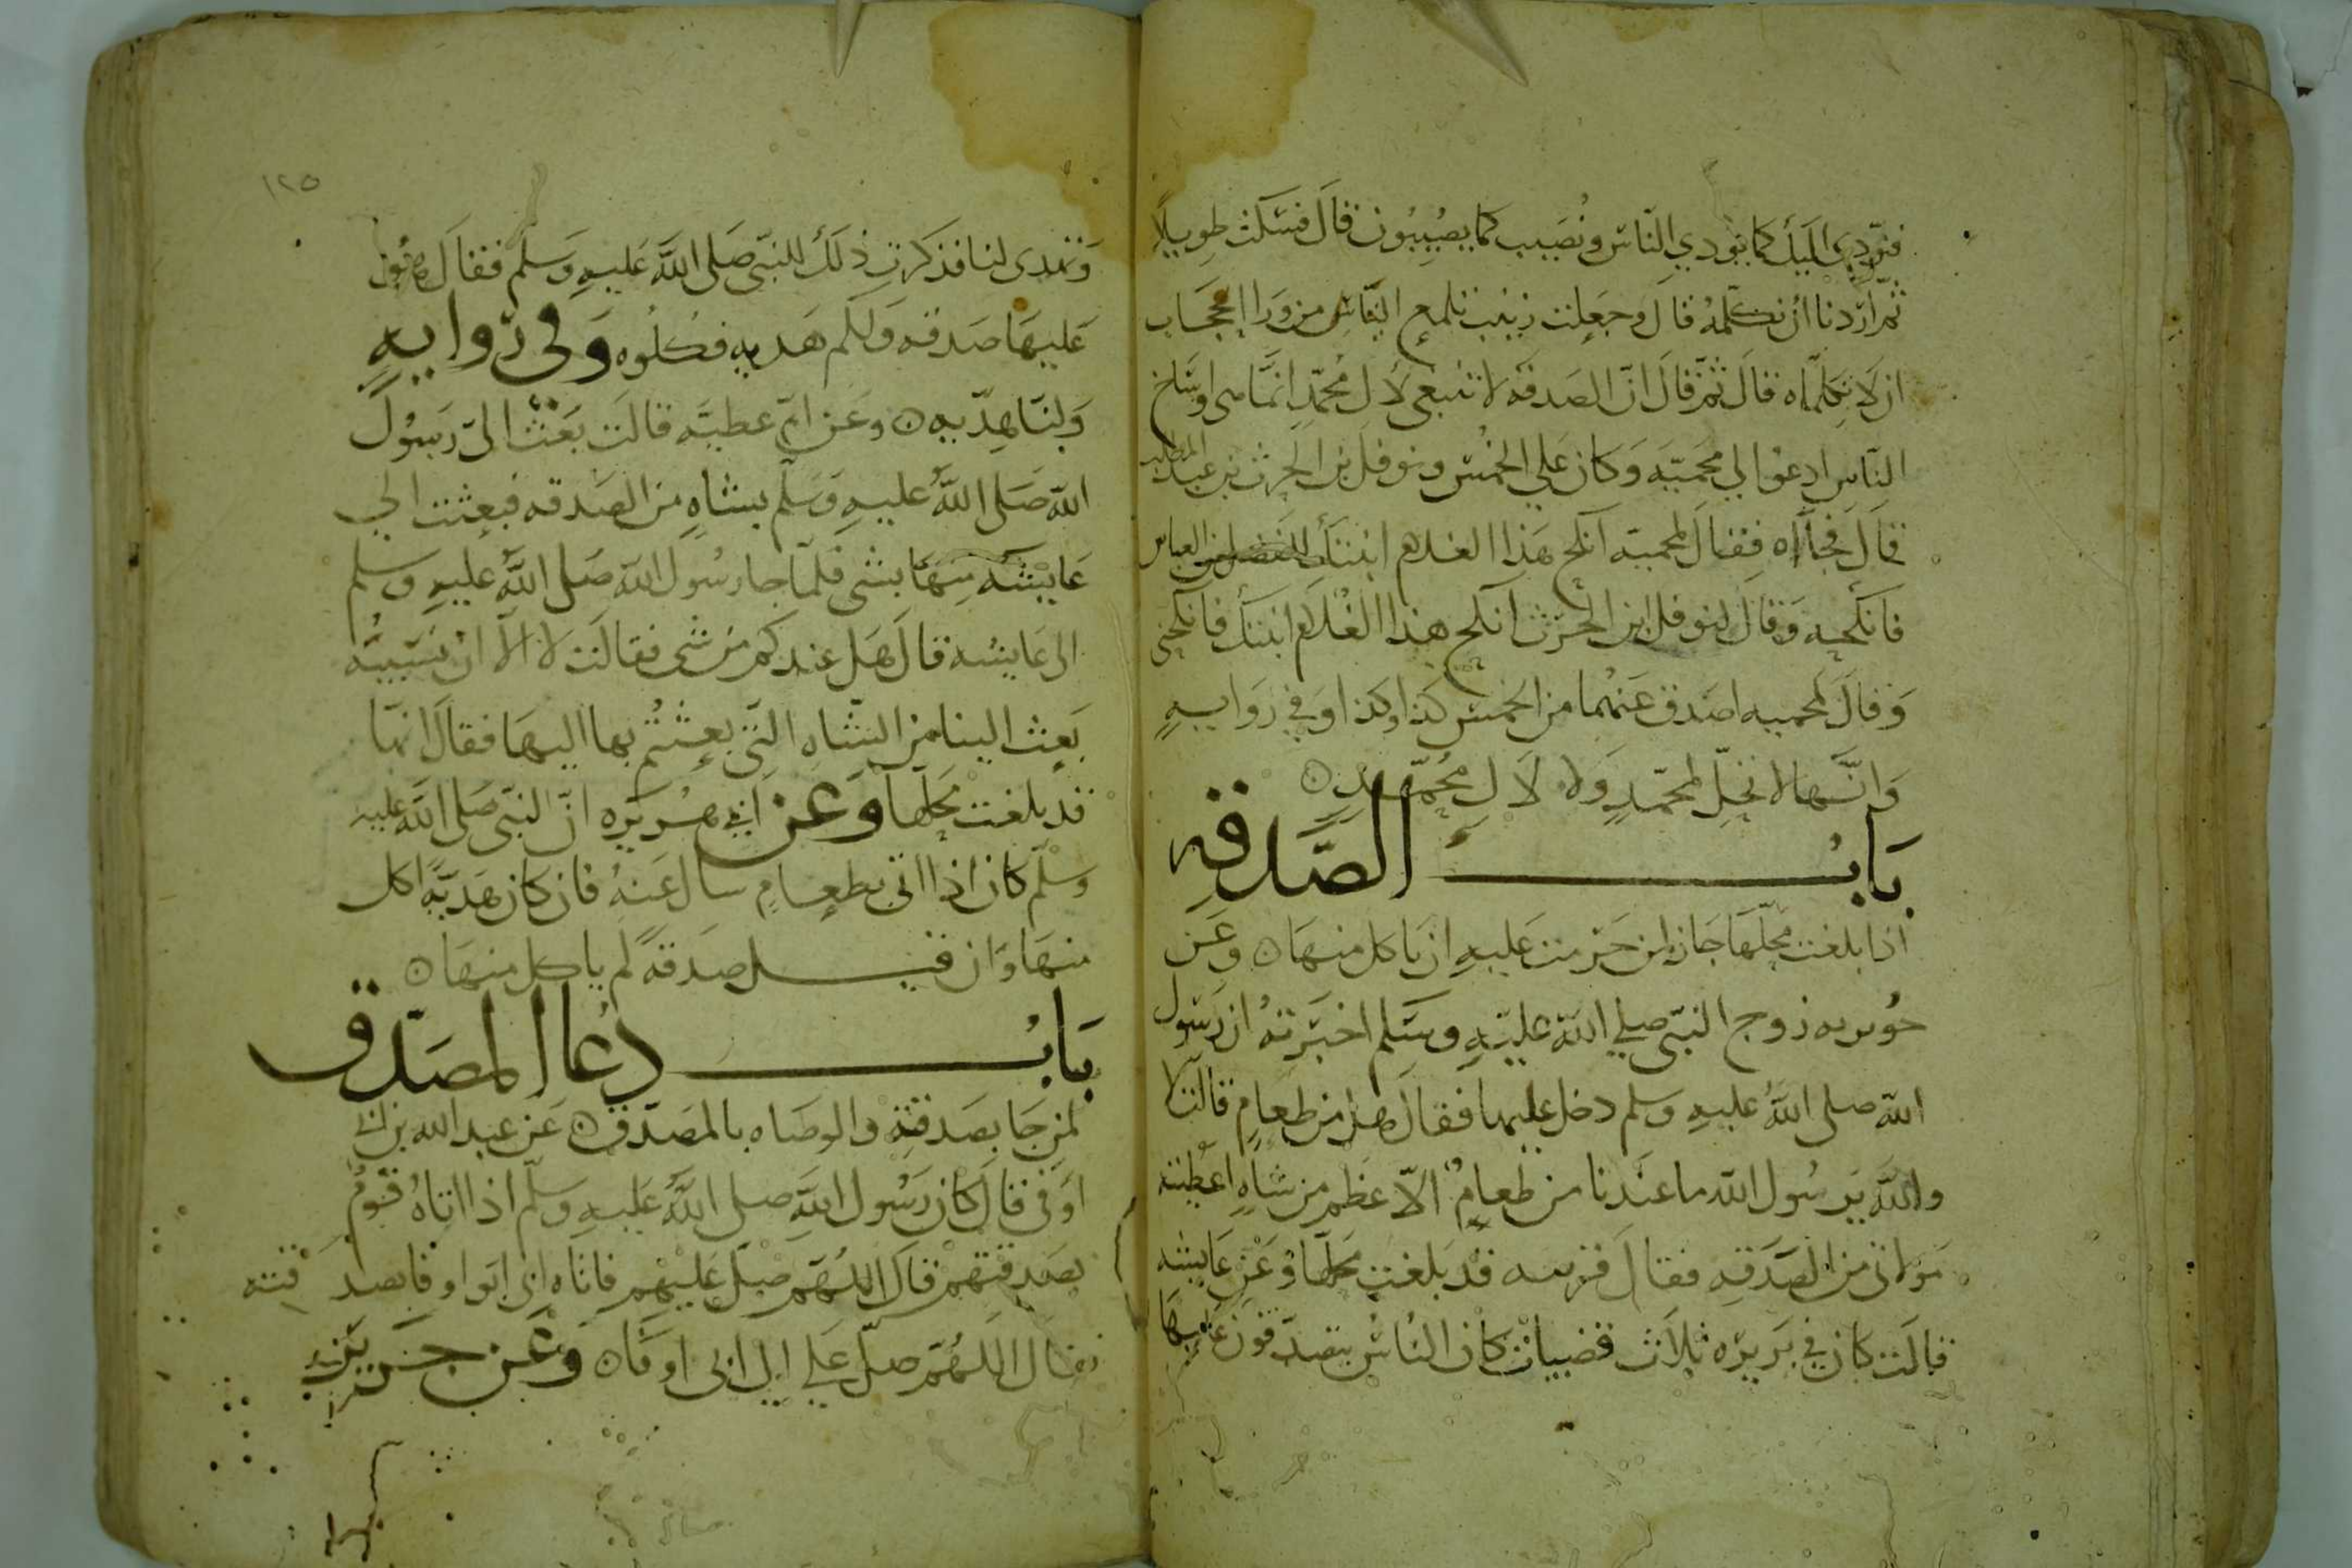 فنؤدي اليك كما يؤدي الناس ونصيب كما يصيبون قال فسكت طويلا
ثم اردنا ان نكلمه قال وجعلت زينب تلمع الينا من ورا الحجاب
ان لا تكلماه قال ثم قال ان الصدقه لا تنبغي لال محمد انما هي اوساخ
الناس ادعوا لي محميه وكان على الخمس ونوفل بن الحرث بن عبد المطلب
قال فجآاه فقال لمحميه انكح هذا الغلام ابنتك للفضل بن العباس
فانكحه وقال لنوفل ابن الحرث انكح هذا الغلام ابنتك فانكحني
وقال لمحميه اصدق عنهما من الخمس كذا وكذا وفي روايه
وانها لا تحل لمحمد ولا لال محمد ن
باب الصدقه
اذا بلغت محلها جاز لمن حرمت عليه ان ياكل منها ن وعن
جويريه زوج النبي صلى الله عليه وسلم اخبرته ان رسول
الله صلى الله عليه وسلم دخل عليها فقال هل من طعام قالت لا
والله يرسول الله ما عندنا من طعام الا عظم من شاه اعطيته
مولاتي من الصدقه فقال قربيه قد بلغت محلها وعن عايشه
قالت كان في بريره ثلاث قضيات كان الناس يتصدقون عليها
١٢٥
وتهدى لنا فذكرت ذلك للنبي صلى الله عليه وسلم فقال هو
عليها صدقه ولكم هديه فكلوه وفي روايه
ولنا هديه ن وعن ام عطيه قالت بعث الي رسول
الله صلى الله عليه وسلم بشاه من الصدقه فبعثت الى
عايشه منها بشي فلما جا رسول الله صلى الله عليه وسلم
الى عايشه قال هل عندكم من شي فقالت لا الا ان نسيبه
بعث الينا من الشاه التي بعثتم بها اليها فقال انها
قد بلغت محلها وعن ابي هريره ان النبي صلى الله عليه
وسلم كان اذا اتي بطعام سال عنه فان كان هديه اكل
منها وان قيل صدقه لم ياكل منها ن
باب دعا المصدق
لمن جا بصدقته والوصاه بالمصدق ن عن عبد الله بن ابي
اوفى قال كان رسول الله صلى الله عليه وسلم اذا اتاه قوم
بصدقتهم قال اللهم صل عليهم فاتاه ابي ابو اوفا بصدقته
فقال اللهم صل على ال ابي اوفا ن وعن جرير بن